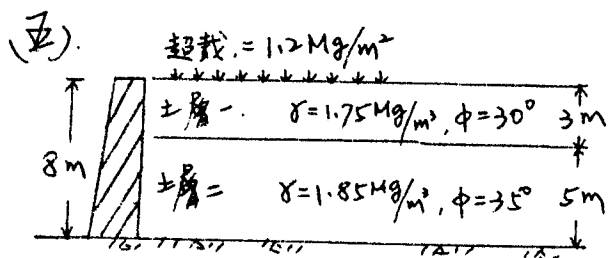 (五).
超載.=1.2Mg/m²
土層一. γ=1.75Mg/m³, φ=30° 3m
8m
土層二 γ=1.85Mg/m³, φ=35° 5m